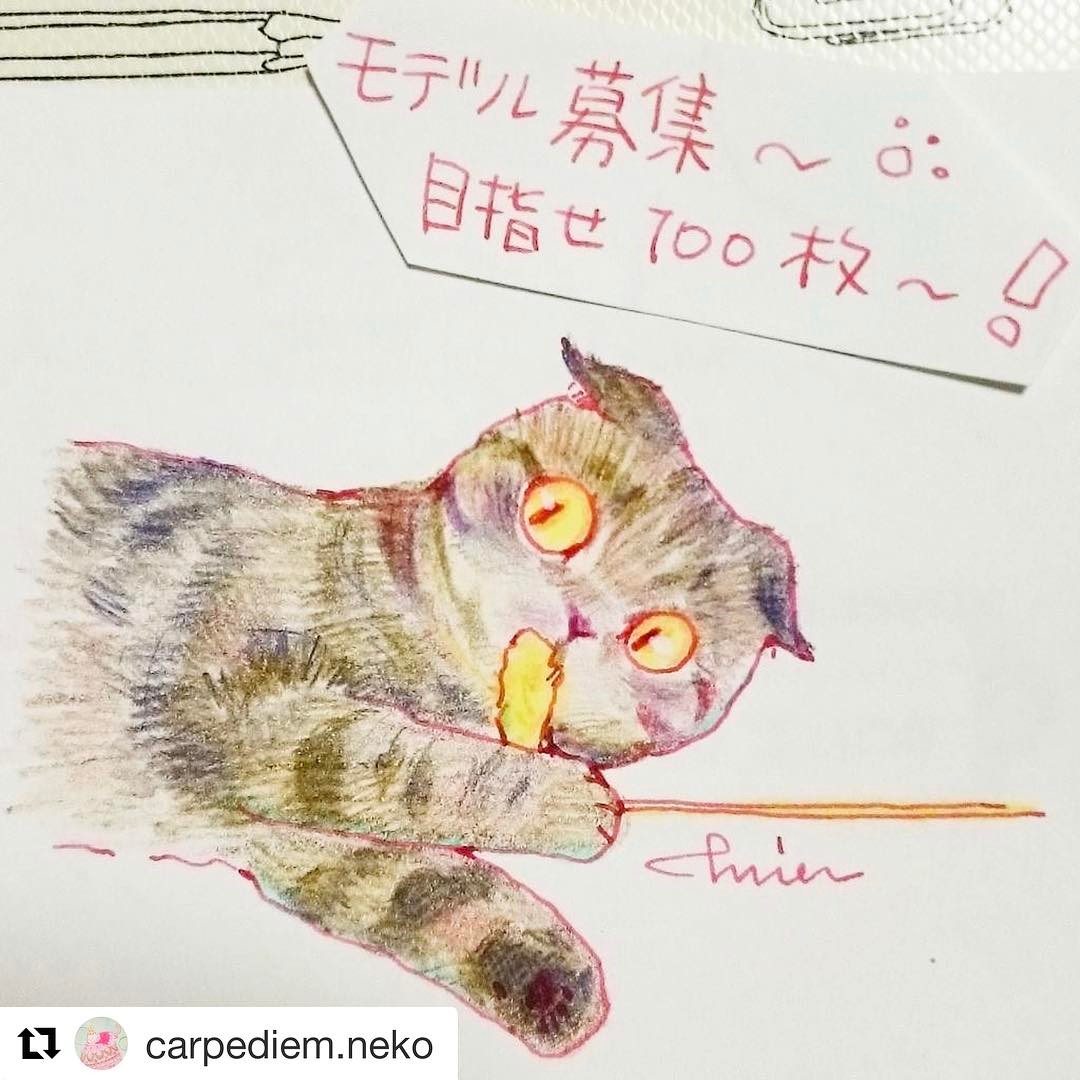 モデル募集〜
目指せ100枚〜!
carpediem.neko